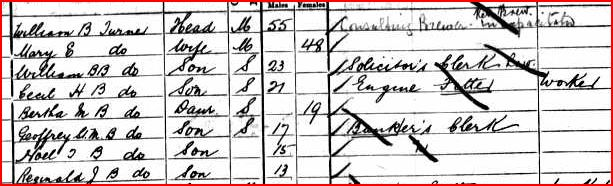 Males Females
William B Turner Head M 55 Consulting Brewer incapacitated
Mary E do Wife M 48
William B B do Son S 23 Solicitor's Clerk Law
Cecil H B do Son S 21 Engine Fitter Worker
Bertha M B do Daur S 19
Geoffrey C. M. B do Son S 17 Banker's Clerk
Noel T B do Son 15
Reginald J B do Son 13